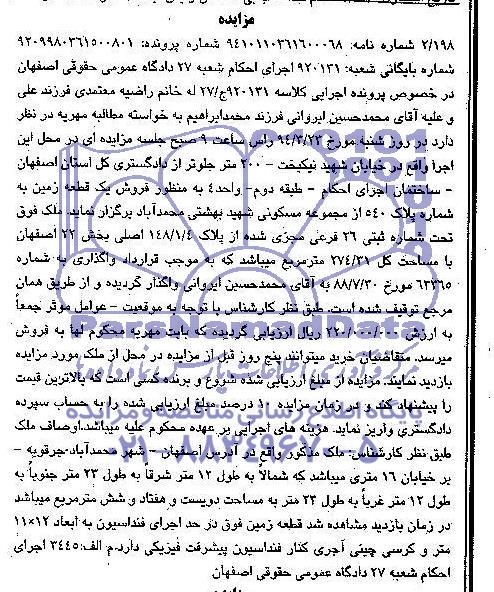 مزایده
۲/۱۹۸ شماره نامه: ۹۴۱۰۱۱۰۳۶۱۶۰۰۰۶۸ شماره پرونده: ۹۲۰۹۹۸۰۳۶۱۵۰۰۸۰۱
شماره بایگانی شعبه: ۹۲۰۱۳۱ اجرای احکام شعبه ۲۷ دادگاه عمومی حقوقی اصفهان
در خصوص پرونده اجرایی کلاسه ۹۲۰۱۳۱ج/۲۷ له خانم راضیه معتمدی فرزند علی
و علیه آقای محمدحسین ایروانی فرزند محمدابراهیم به خواسته مطالبه مهریه در نظر
دارد در روز شنبه مورخ ۹۴/۳/۲۳ راس ساعت ۹ صبح جلسه مزایده ای در محل این
اجرا واقع در خیابان شهید نیکبخت - ۲۰۰ متر جلوتر از دادگستری کل استان اصفهان
- ساختمان اجرای احکام - طبقه دوم- واحد۴ به منظور فروش یک قطعه زمین به
شماره پلاک ۵۴۰ از مجموعه مسکونی شهید بهشتی محمدآباد برگزار نماید. ملک فوق
تحت شماره ثبتی ۲۶ فرعی مجزی شده از پلاک ۱۴۸/۱/۴ اصلی بخش ۲۲ اصفهان
با مساحت کل ۲۷۴/۳۱ مترمربع میباشد که به موجب قرارداد واگذاری به شماره
۶۳۳۶۵ مورخ ۸۸/۷/۳۰ به آقای محمدحسین ایروانی واگذار گردیده و از طریق همان
مرجع توقیف شده است. طبق نظر کارشناس با توجه به موقعیت - عوامل موثر جمعاً
به ارزش ریال ارزیابی گردیده که بابت مهریه محکوم لها به فروش
میرسد. متقاضیان خرید میتوانند پنج روز قبل از مزایده در محل از ملک مورد مزایده
بازدید نمایند. مزایده از مبلغ ارزیابی شده شروع و برنده کسی است که بالاترین قیمت
را پیشنهاد کند و در زمان مزایده ۱۰ درصد مبلغ ارزیابی شده را به حساب سپرده
دادگستری واریز نماید. هزینه های اجرایی بر عهده محکوم علیه میباشد.اوصاف ملک
طبق نظر کارشناس: ملک مذکور واقع در آدرس اصفهان - شهر محمدآباد-جرقویه -
بر خیابان ۱۶ متری میباشد که شمالاً به طول ۱۲ متر شرقا به طول ۲۳ متر جنوباً به
طول ۱۲ متر غرباً به طول ۲۳ متر به مساحت دویست و هفتاد و شش مترمربع میباشد
در زمان بازدید مشاهده شد قطعه زمین فوق در حد اجرای فنداسیون به ابعاد ۱۲×۱۱
متر و کرسی چینی آجری کنار فنداسیون پیشرفت فیزیکی دارد.م الف:۳۴۴۵ اجرای
احکام شعبه ۲۷ دادگاه عمومی حقوقی اصفهان
ParsNamadData
پایگاه اطلاع رسانی مناقصه و مزایده
۰۲۱-۸۸۳۴۹۶۷۰-۵